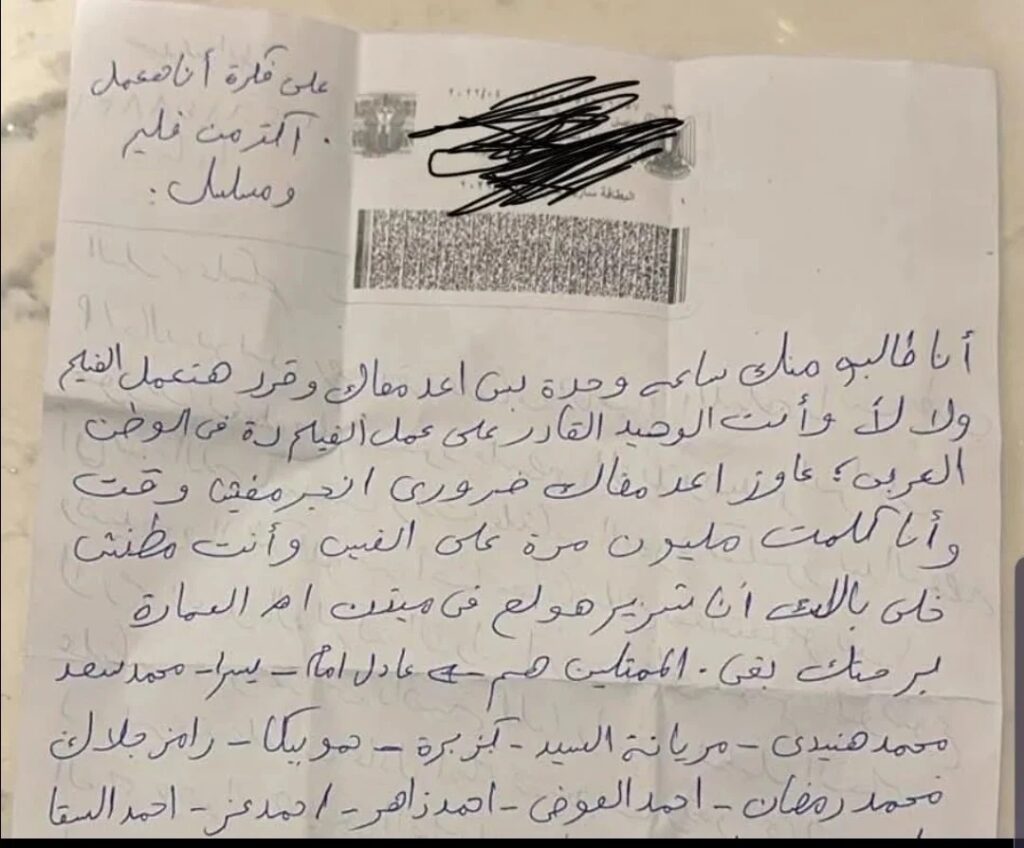 على فكرة أنا هعمل
أكتر من فليم
ومسلسل :
٢٠٢٢/٠٤
البطاقة سارية
أنا طالبو منك ساعه وحدة بس اعد معاك وقرر هتعمل الفيلم
ولا لأ وأنت الوحيد القادر على عمل الفيلم دة فى الوطن
العربى؛ عاوز اعد معاك ضرورى انجر مفيش وقت
وأنا كلمت مليون مرة على الفيس وأنت مطنش
خلى بالك أنا شرير هولع فى ام العمارة
بقى . الممثلين هم ← عادل امام - يسرا - محمد سعد
محمد هنيدى - مريانة السيد - كزبرة - حمو بيكا - رامز جلال
محمد رمضان - احمد العوضى - احمد زاهر - احمد عز - احمد السقا